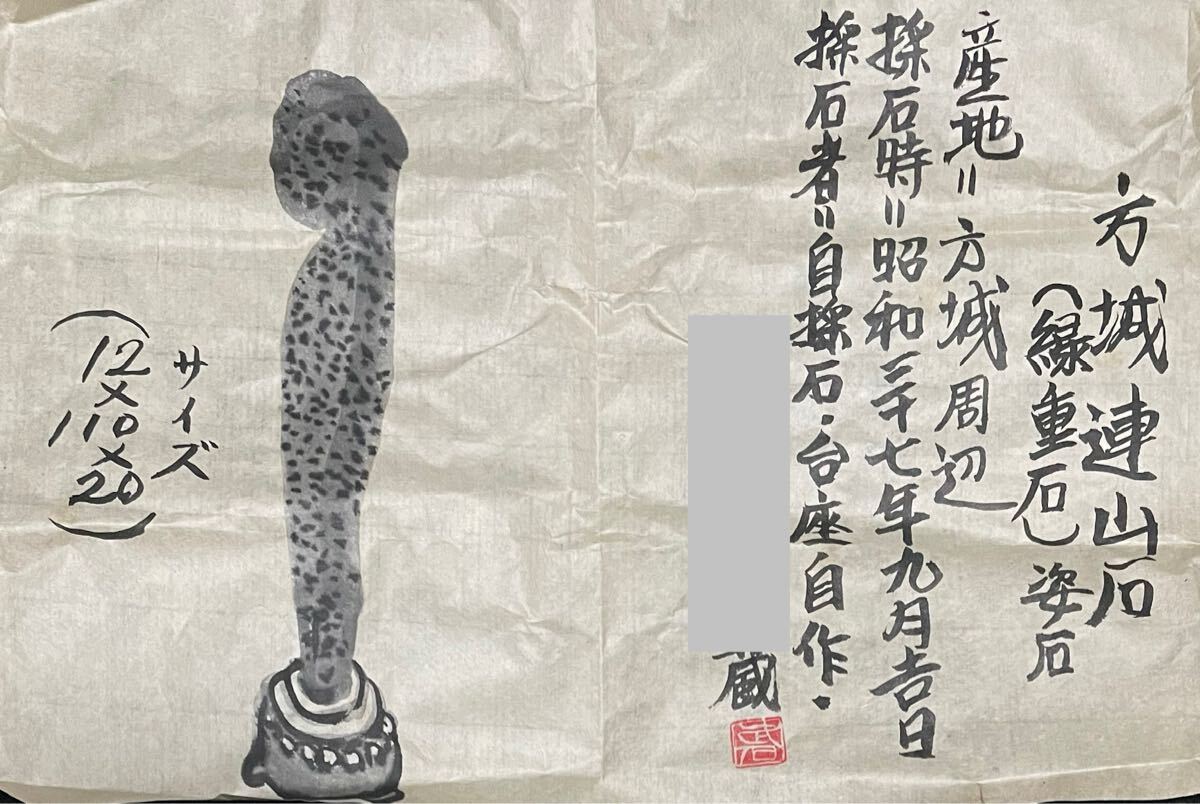 方城連山石
(緑重石)姿石
産地=方城周辺
採石時=昭和三十七年九月吉日
採石者=自採石・台座自作・
蔵
サイズ
(12×110×20)